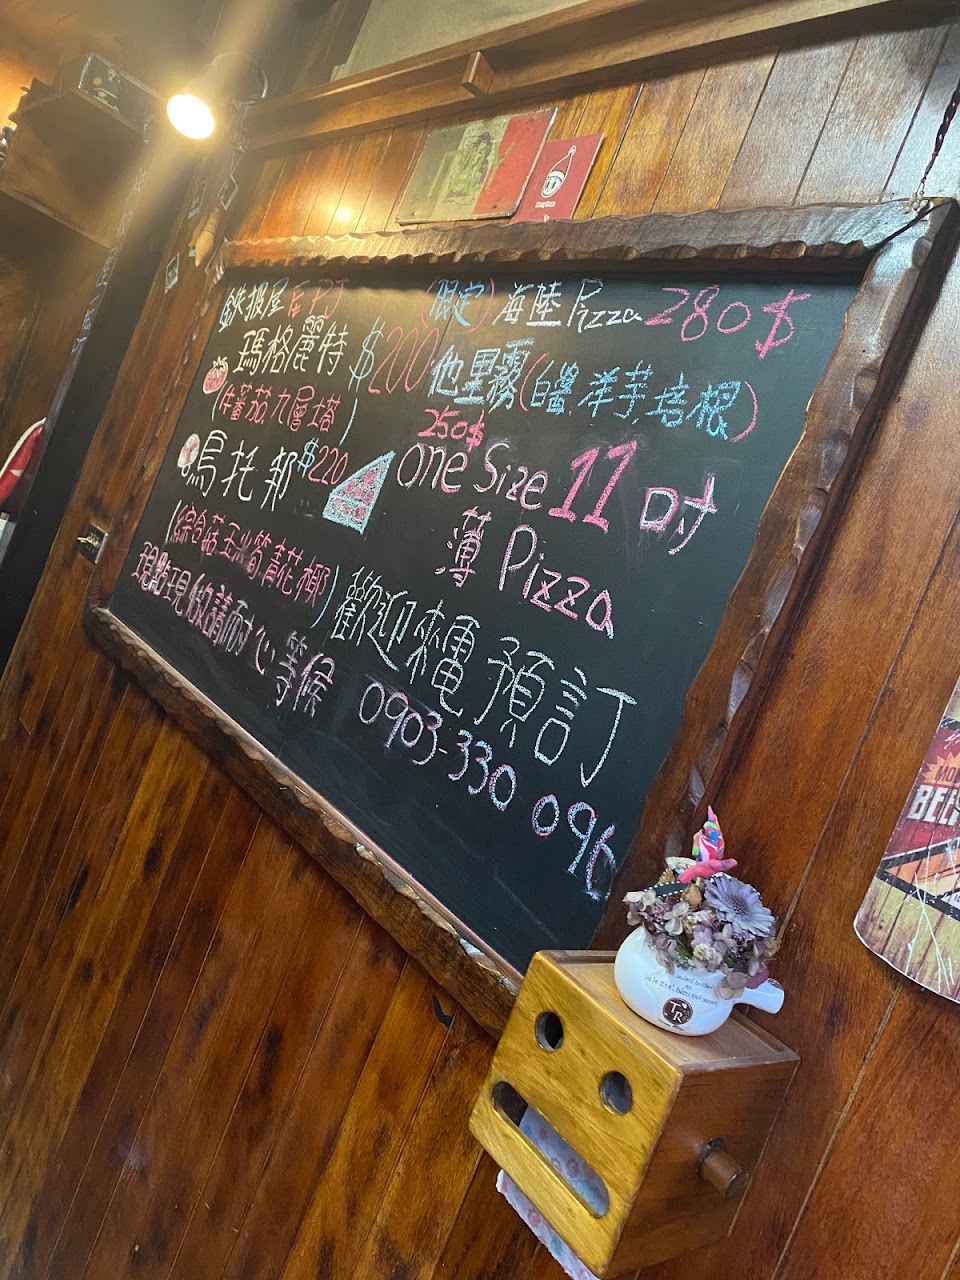 鐵板屋
瑪格麗特 $200
(牛番茄九層塔)
烏托邦 $220
(綜合菇玉米筍青花椰)
現點現做請耐心等候
(限定) 海陸 Pizza 280$
他里霧(白醬洋芋培根)
250$
one Size 11吋
薄 Pizza
歡迎來電預訂
0903-330 096
BEE
TR